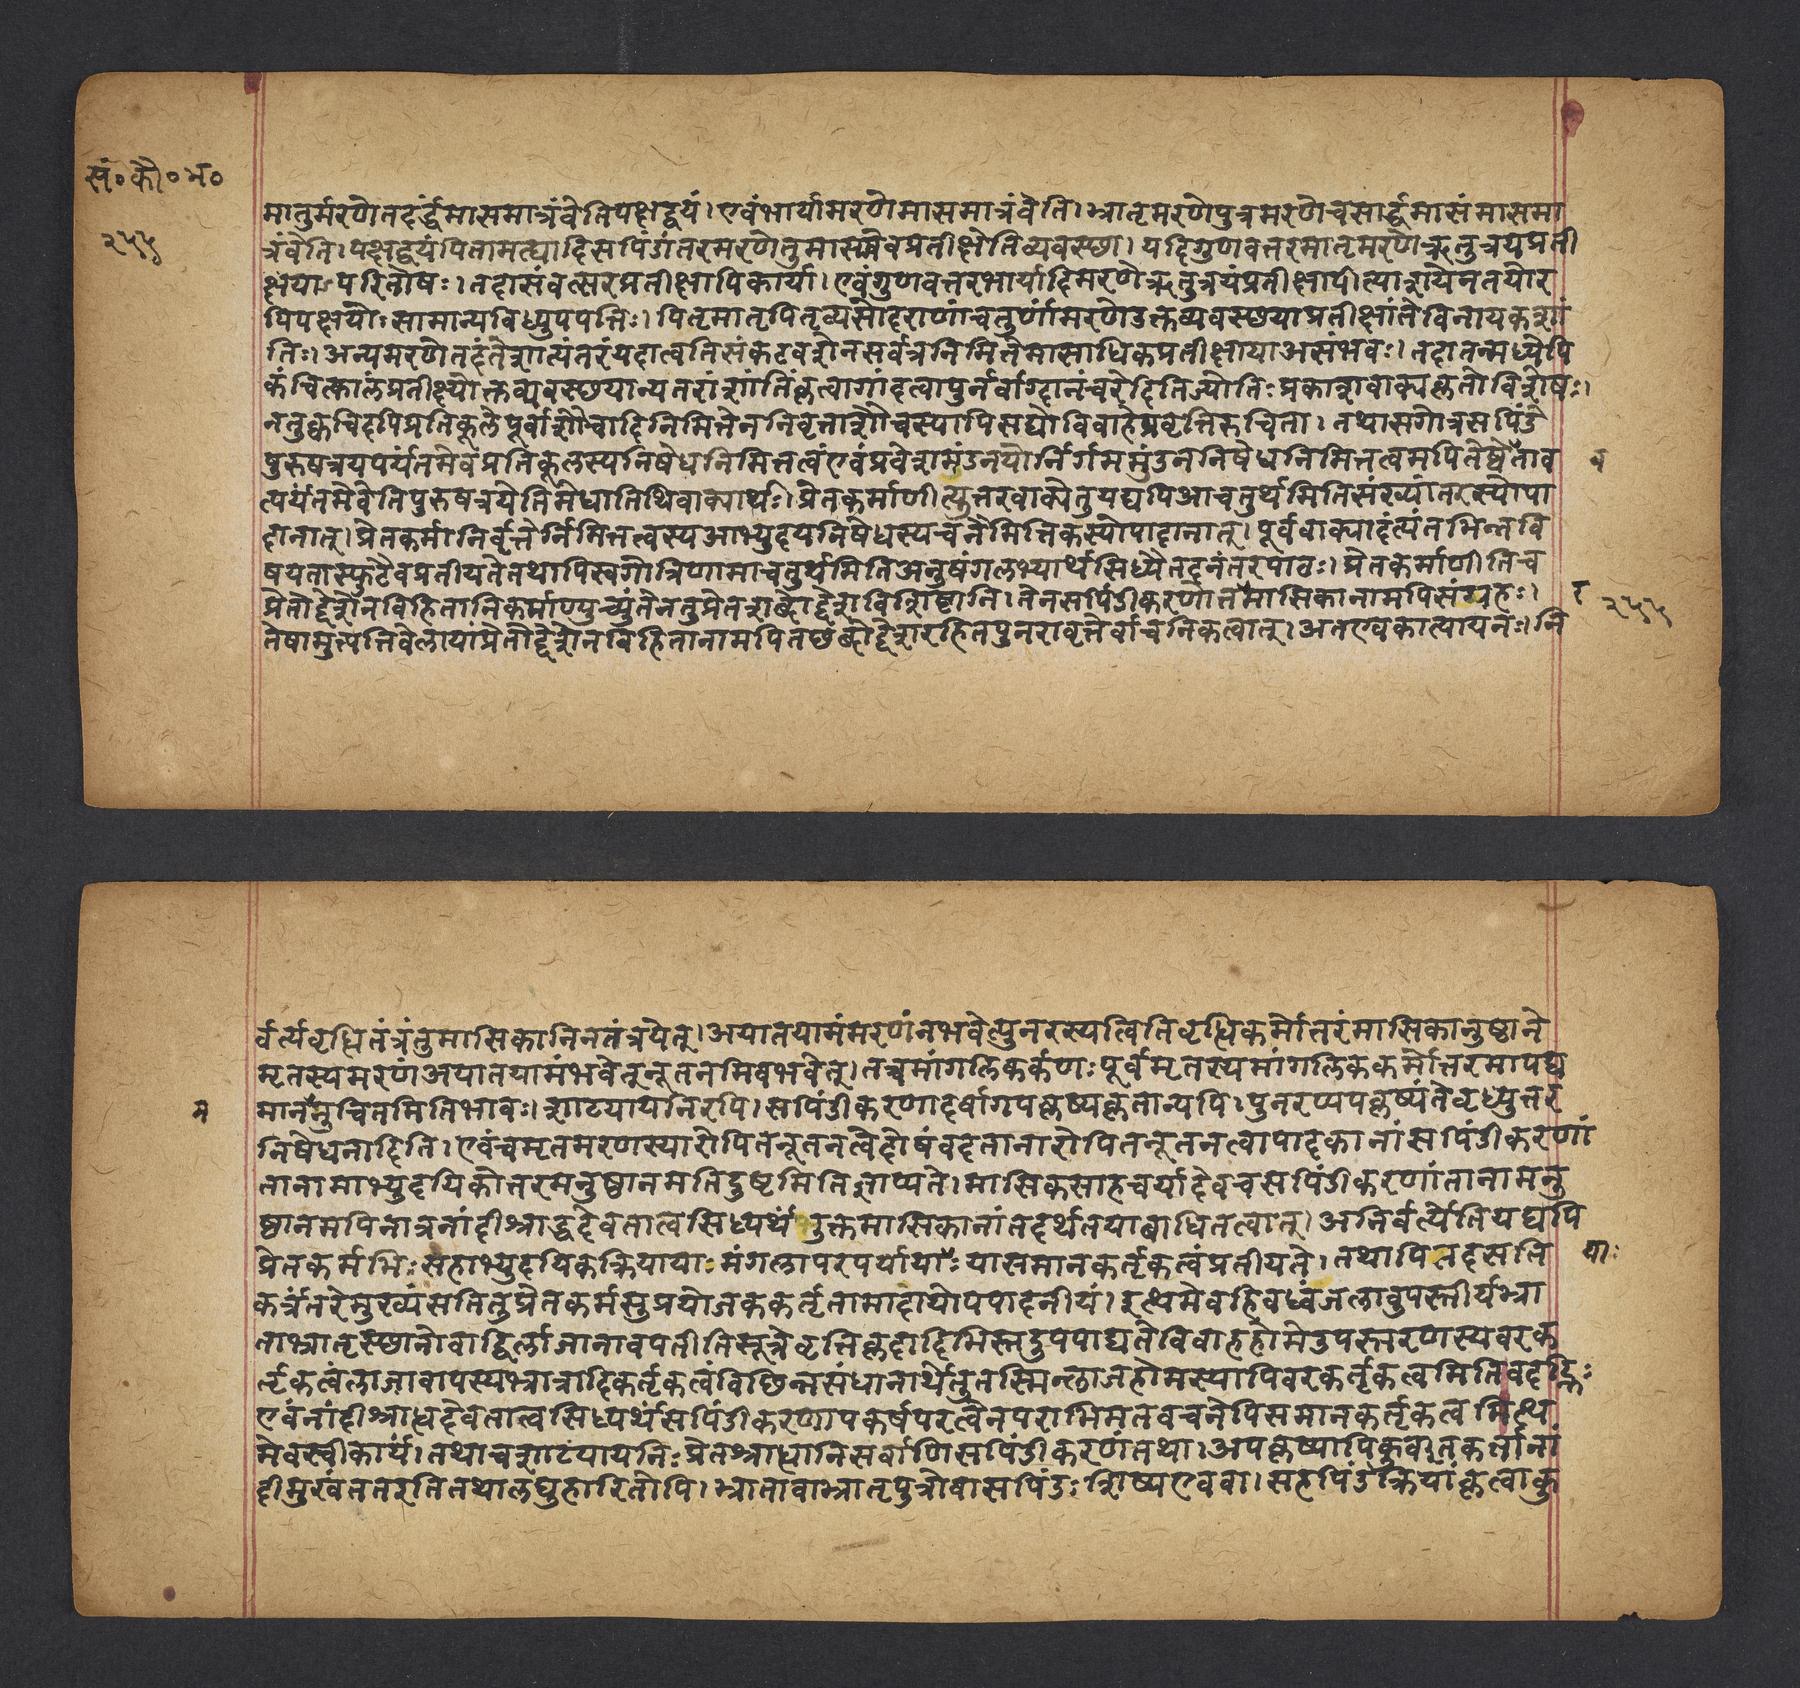 सं॰कौ॰भ॰
२५५
मातुर्मरणेतदर्द्धमासमात्रंवेतिपक्षद्वयं।एवंभार्यामरणेमासमात्रंवेति।भ्रातृमरणेपुत्रमरणेचसार्द्धमासंमासमा
त्रंवेति।पक्षद्वयंपितामत्द्यादिसपिंडांतरमरणेतुमासमेवप्रतीक्षेतिव्यवस्छा।यदिगुणवत्तरमातृमरणेऋतुत्रयप्रती
क्षयाऽपरितोषः।तदासंवत्सरप्रतीक्षापिकार्या।एवंगुणवत्तरभार्यादिमरणेऋतुत्रयंप्रतीक्षापीत्याशयेनतयोर
पिपक्षयोःसामान्यविध्युपपत्तिः।पितृमातृपितृव्यसोदराणांचतुर्णांमरणेउक्तव्यवस्छयाप्रतीक्षांतेविनायकशां
तिः।अन्यमरणेतदंतेशात्यंतरंयदात्वतिसंकटवशेनसर्वत्रनिमित्तेमासाधिकप्रतीक्षायाअसंभवः।तदातन्मध्येपि
कंचित्कालंप्रतीक्ष्योक्तव्यवस्छयान्यतरांशांतिंकृत्वागांदत्वापुनर्वाग्दानंचरेदितिज्योतिःप्रकाशवाक्यकृतोविशेषः।
ननुक्वचिदपिप्रतिकूलेपूर्वाशौचादिनिमित्तेननिवृत्ताशौचस्यापिसद्योविवाहेप्रवृत्तिरुचिता।तथासगोत्रसपिंडे
पुरुषत्रयपर्यंतमेवंप्रतिकूलस्यनिषेधनिमित्तत्वंएवंप्रवेशमंडनयोर्निर्गममुंडननिषेधनिमित्तत्वमपितेष्वेताव
व
त्पर्यंतमेवेतिपुरुषत्रयेतिमेधातिथिवाक्यार्थः।प्रेतकर्माणीत्युत्तरवाक्येतुयद्यपिआचतुर्थमितिसंख्यांतरस्योपा
दानात्।प्रेतकर्मानिर्वृत्तेर्निमित्तत्वस्यआभ्युदयनिषेधस्यचनैमित्तिकस्योपादानात्।पूर्ववाक्यादंत्यंतभिन्नवि
षयतास्फुटैवप्रतीयतेतथापिस्वगोत्रिणामाचतुर्थमितिअनुषंगलभ्यार्थसिध्यैतदनंतरपाठः।प्रेतकर्माणीतिच
प्रेतोद्देशेनविहितानिकर्माण्युच्यंतेनतुप्रेतशब्दोद्देशविशिष्टानि।तेनसपिंडीकरणोत्तमासिकानामपिसंग्रहः।
र २५५
तेषामुत्पत्तिवेलायांप्रेतोद्देशेनविहितानामपितछब्दोद्देशरहितपुनरावृत्तेर्वाचनिकत्वात्।अतएवकात्यायनः।नि
र्वर्त्यवृधितंत्रंतुमासिकानिनतंत्रयेत्।अयातयामंमरणंनभवेत्पुनरस्यत्वितिवृधिकर्मोत्तरंमासिकानुष्ठाने
मृतस्यमरणंअयातयामंभवेत्नूतनमिवभवेत्।तच्चमांगलिकर्कणःपूर्वमृतस्यमांगलिककर्मोत्तरमापद्य
म
मानमुचितमितिभावः।शाटयायनिरपि।सपिंडीकरणादर्वागपकृष्यकृतान्यपि।पुनरप्यपकृष्यंतेवृध्युत्तर
निषेधनादिति।एवंचमृतमरणस्यारोपितनूतनत्वेदोषंवदतानारोपितनूतनत्वापादकानांसपिंडीकरणां
तानामाभ्युदयिकोत्तरमनुष्ठानमतिदुष्टमितिज्ञाप्यते।मासिकसाहचर्यादेवचसपिंडीकरणांतानामनु
ष्ठानमपिनात्रनांदीश्राद्धदेवतात्वसिध्यर्थंनुक्तमासिकानांतदर्थतयाबाधितत्वात्।अनिर्वर्त्येतियद्यपि
प्रेतकर्मभिःसहाभ्युदयिकक्रियायाःमंगलापरपर्यायाःयासमानकर्तृकत्वंप्रतीयते।तथापितदसति
याः
कर्त्रंतरेमुख्यंसतितुप्रेतकर्मसुप्रयोजककर्तृतामादायोपपादनीयं।इत्थमेवहिवध्वंजलावुपस्तीर्यभ्रा
ताभ्रातृस्छानोवाद्विर्लाजानावपतीतिसूत्रेवृत्तिकृदादिभिस्तदुपपाद्यतेविवाहहोमेउपस्तरणस्यवरक
र्तृकत्वंलाजावापस्यभ्रात्रादिकर्तृकत्वंविछिन्नसंधानार्थेतुतस्मिन्लाजहोमस्यापिवरकर्तृकत्वमितिवदद्भिः
एवंनांदीश्राधदेवतात्वसिध्यर्थंसपिंडीकरणापकर्षपरत्वेनपराभिमतवचनेपिसमानकर्तृकत्वमित्थ
मेवस्वीकार्यं।तथाचशाटंयायनिःप्रेतश्राधानिसर्वाणिसपिंडीकरणंतथा।अपकृष्यापिकुर्वीतकर्त्तानां
दीमुखंततइतितथालघुहारितोपि।भ्रातावाभ्रातृपुत्रोवासपिंडःशिष्यएववा।सहपिंडक्रियांकृत्वाकु